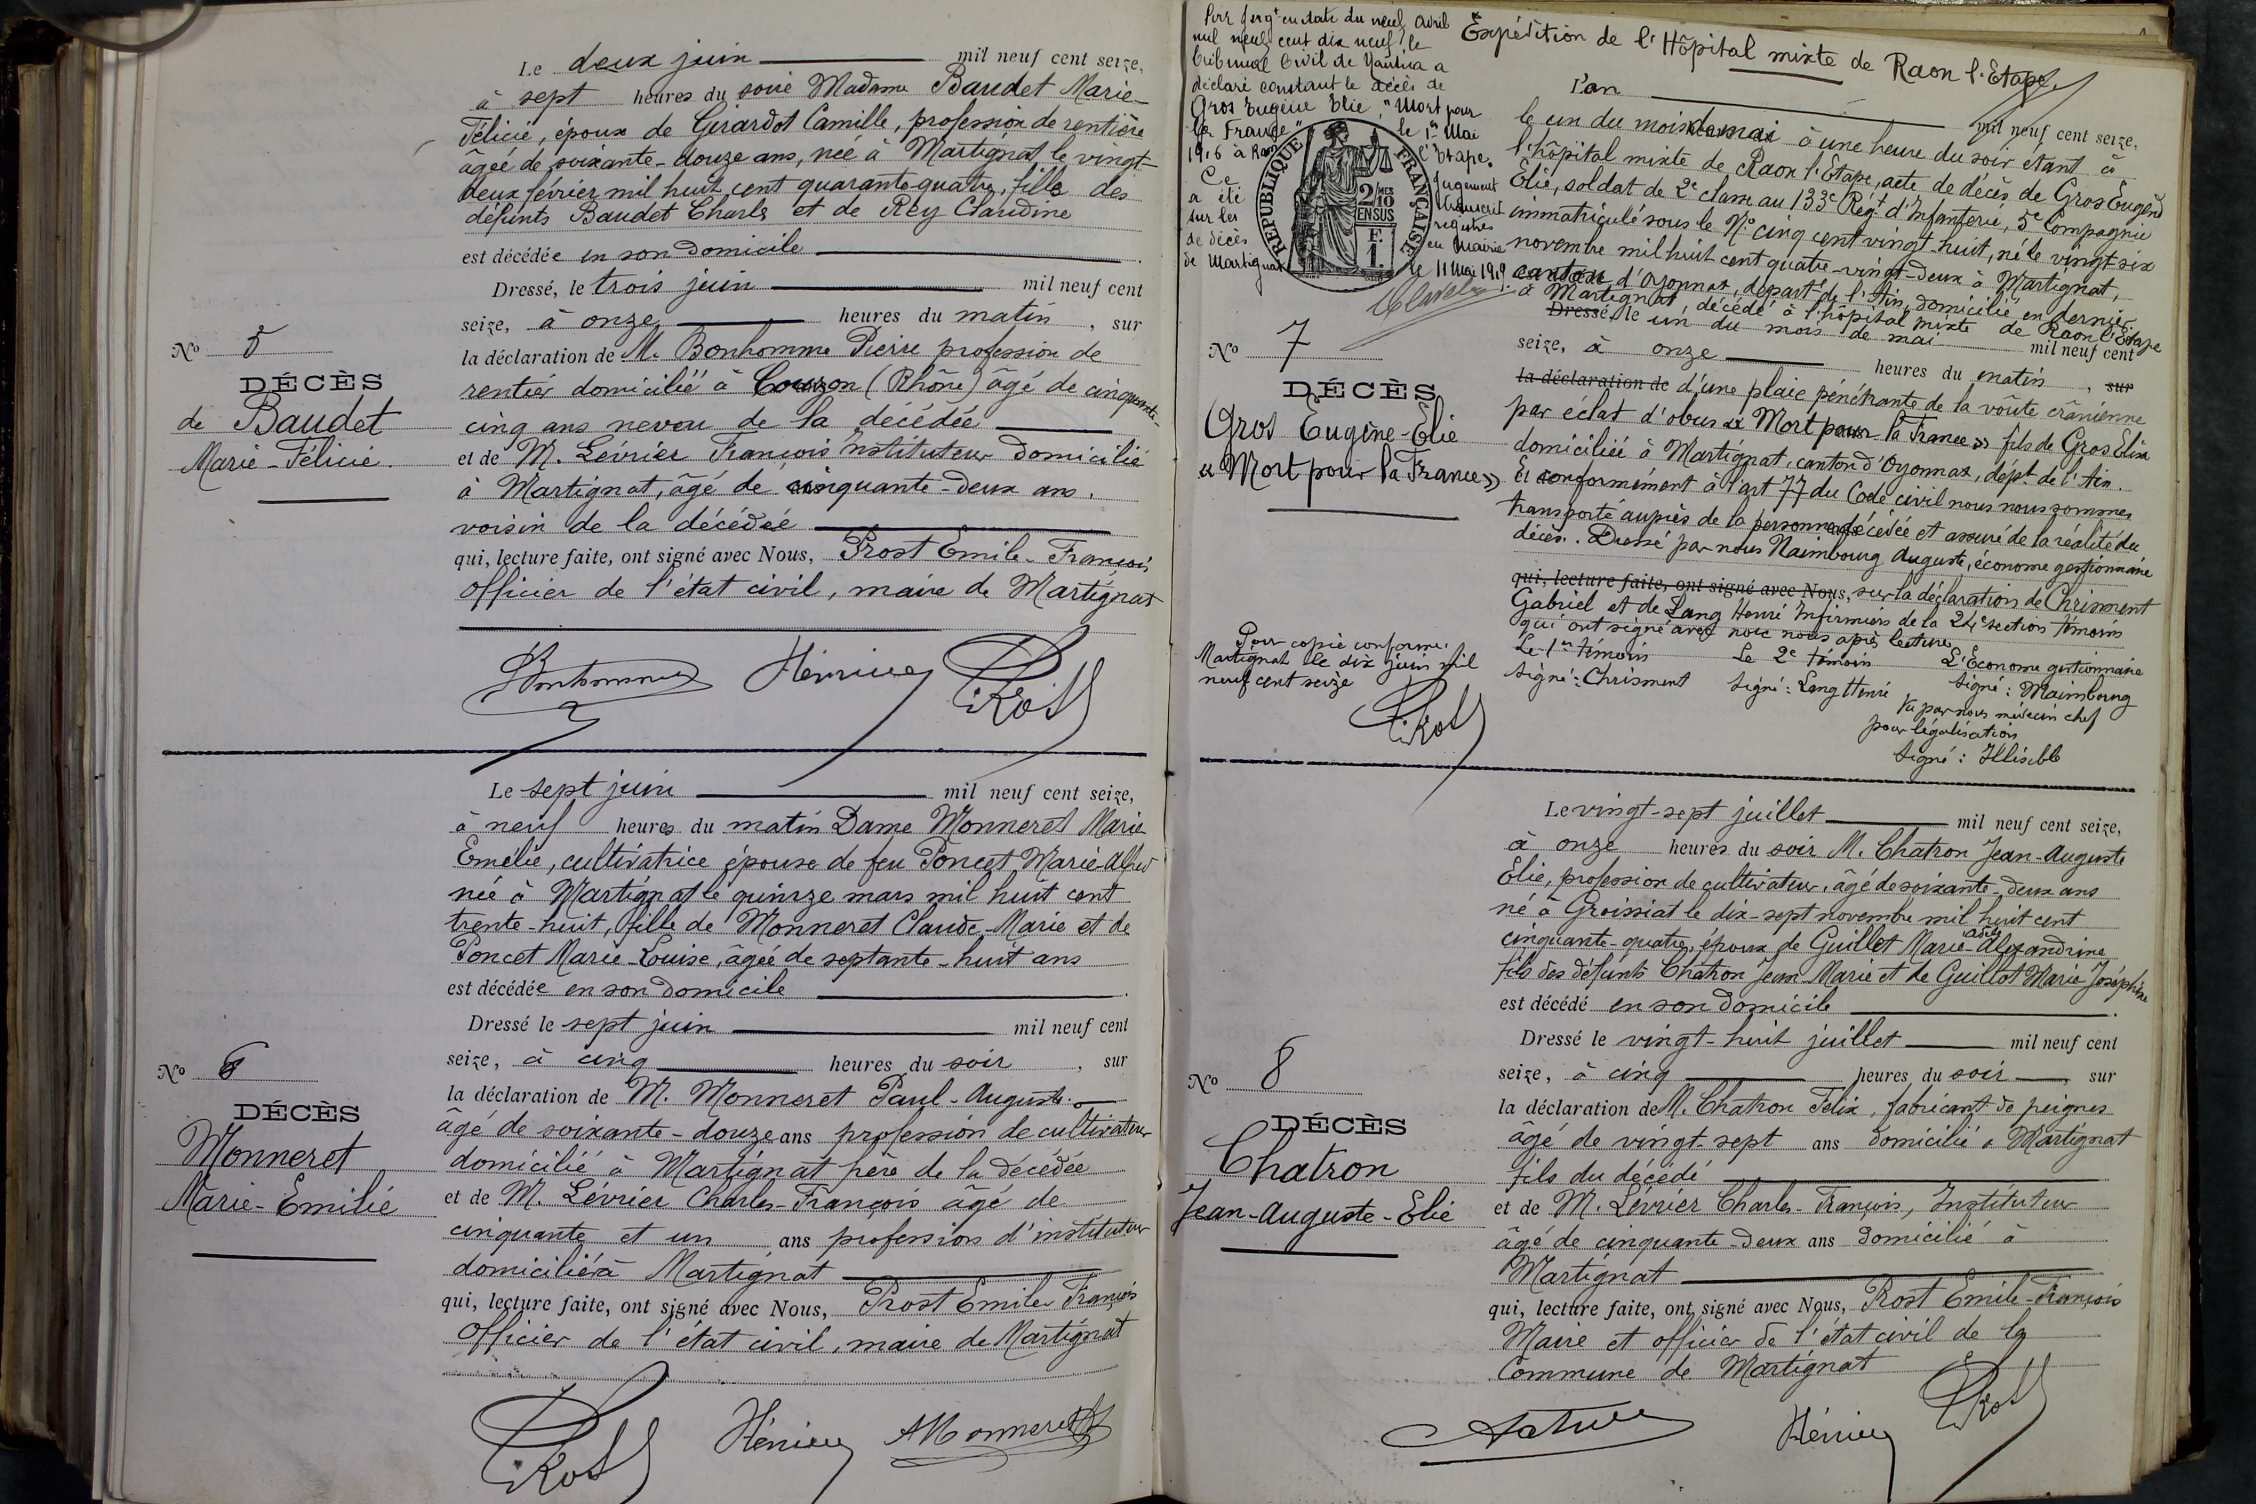 Le deux juin mil neuf cent seize,
à sept heures du soir Madame Baudet Marie-
Félicie, épouse de Girardot Camille, profession de rentière
âgée de soixante-douze ans, née à Martignat le vingt
deux février mil huit cent quarante-quatre, fille des
défunts Baudet Charles et de Rey Claudine
est décédée en son domicile
Dressé, le trois juin mil neuf cent
seize, à onze heures du matin, sur
la déclaration de M. Bonhomme Pierre profession de
rentier domicilié à Couzon (Rhône) âgé de cinquante-
cinq ans neveu de la décédée
et de M. Lévrier François Instituteur domicilié
à Martignat, âgé de cinquante-deux ans,
voisin de la décédée
qui, lecture faite, ont signé avec Nous, Prost Emile-François
officier de l'état civil, maire de Martignat
No 5
DÉCÈS
de Baudet
Marie-Félicie.
Prost
Le sept juin mil neuf cent seize,
à neuf heures du matin Dame Monneret Marie
Emélie, cultivatrice épouse de feu Poncet Marie-Alfred
née à Martignat le quinze mars mil huit cent
trente-huit, fille de Monneret Claude-Marie et de
Poncet Marie-Louise, âgée de septante-huit ans
est décédée en son domicile
Dressé le sept juin mil neuf cent
seize, à cinq heures du soir, sur
la déclaration de M. Monneret Paul-Auguste
âgé de soixante-douze ans profession de cultivateur
domicilié à Martignat père de la décédée
et de M. Lévrier Charles-François âgé de
cinquante et un ans profession d'instituteur
domicilié à Martignat
qui, lecture faite, ont signé avec Nous, Prost Emile François
officier de l'état civil, maire de Martignat
No 6
DÉCÈS
Monneret
Marie-Emilie
Prost
AMonneret
Par jugt en date du neuf avril
mil neuf cent dix neuf le
tribunal Civil de Nantua a
déclaré constant le décès de
Gros Eugène Elie, "Mort pour
la France" le 1er Mai
1916 à Raon l'Etape.
Ce jugement
a été transcrit
sur les registres
de décès en Mairie
de Martignat le 11 Mai 1919.
RÉPUBLIQUE FRANÇAISE
2 MES 10
EN SUS
F.
1.
Expédition de l'Hôpital mixte de Raon l'Etape.
L'an mil neuf cent seize,
le un du mois de mai à une heure du soir étant à
l'hôpital mixte de Raon l'Etape, acte de décès de Gros Eugène
Elie, soldat de 2e classe au 133e Régt d'Infanterie, 5e Compagnie
immatriculé sous le No cinq cent vingt-huit, né le vingt-six
novembre mil huit cent quatre-vingt-deux à Martignat,
canton d'Oyonnax, départt de l'Ain, domicilié en dernier
à Martignat, décédé à l'hôpital mixte de Raon l'Etape
Dressé, le un du mois de mai mil neuf cent
seize, à onze heures du matin, sur
la déclaration de d'une plaie pénétrante de la voûte crânienne
par éclat d'obus « Mort pour la France » fils de Gros Elisa
domiciliée à Martignat, canton d'Oyonnax, dépt de l'Ain.
Et conformément à l'art 77 du Code civil nous nous sommes
transporté auprès de la personne décédée et assuré de la réalité du
décès. Dressé par nous Maimbourg Auguste, économe gestionnaire
qui, lecture faite, ont signé avec Nous, sur la déclaration de Chrisment
Gabriel et de Lang Henri Infirmiers de la 24e section témoins
qui ont signé avec nous après lecture
Le 1er témoin Le 2e témoin L'Econome gestionnaire
Signé: Chrisment Signé: Lang Henri Signé: Maimbourg
Vu par nous médecin chef
pour légalisation
Signé: Illisible
No 7
DÉCÈS
Gros Eugène-Elie
« Mort pour la France »
Pour copie conforme.
Martignat le dix juin mil
neuf cent seize
Prost
Le vingt-sept juillet mil neuf cent seize,
à onze heures du soir M. Chatron Jean-Auguste
Elie, profession de cultivateur, âgé de soixante-deux ans
né à Groissiat le dix-sept novembre mil huit cent
cinquante-quatre, époux de Guillet Marie Adèle Alexandrine
fils des défunts Chatron Jean-Marie et de Guillot Marie Joséphine
est décédé en son domicile
Dressé le vingt-huit juillet mil neuf cent
seize, à cinq heures du soir, sur
la déclaration de M. Chatron Félix, fabricant de peignes
âgé de vingt-sept ans domicilié à Martignat
fils du décédé
et de M. Lévrier Charles-François, Instituteur
âgé de cinquante-deux ans domicilié à
Martignat
qui, lecture faite, ont signé avec Nous, Prost Emile-François
Maire et officier de l'état civil de la
Commune de Martignat
No 8
DÉCÈS
Chatron
Jean-Auguste-Elie
Prost